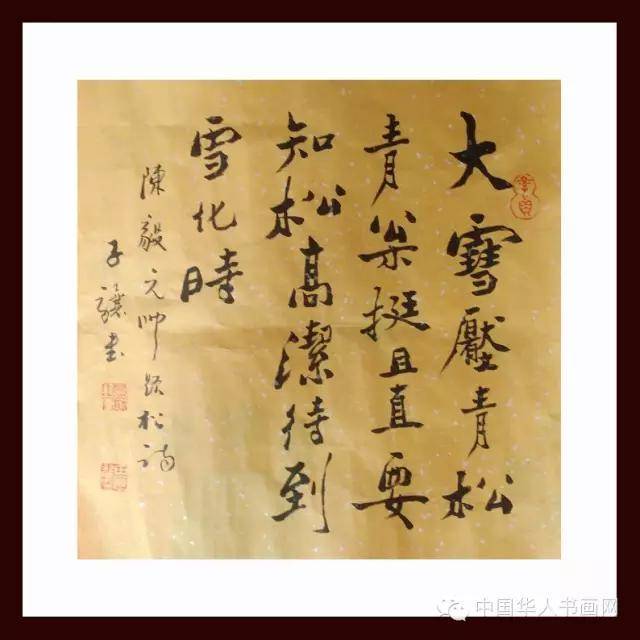 大雪壓青松
青枀挺且直要
知松高潔待到
雪化時
陳毅元帥松詩
子書
中国华人书画网